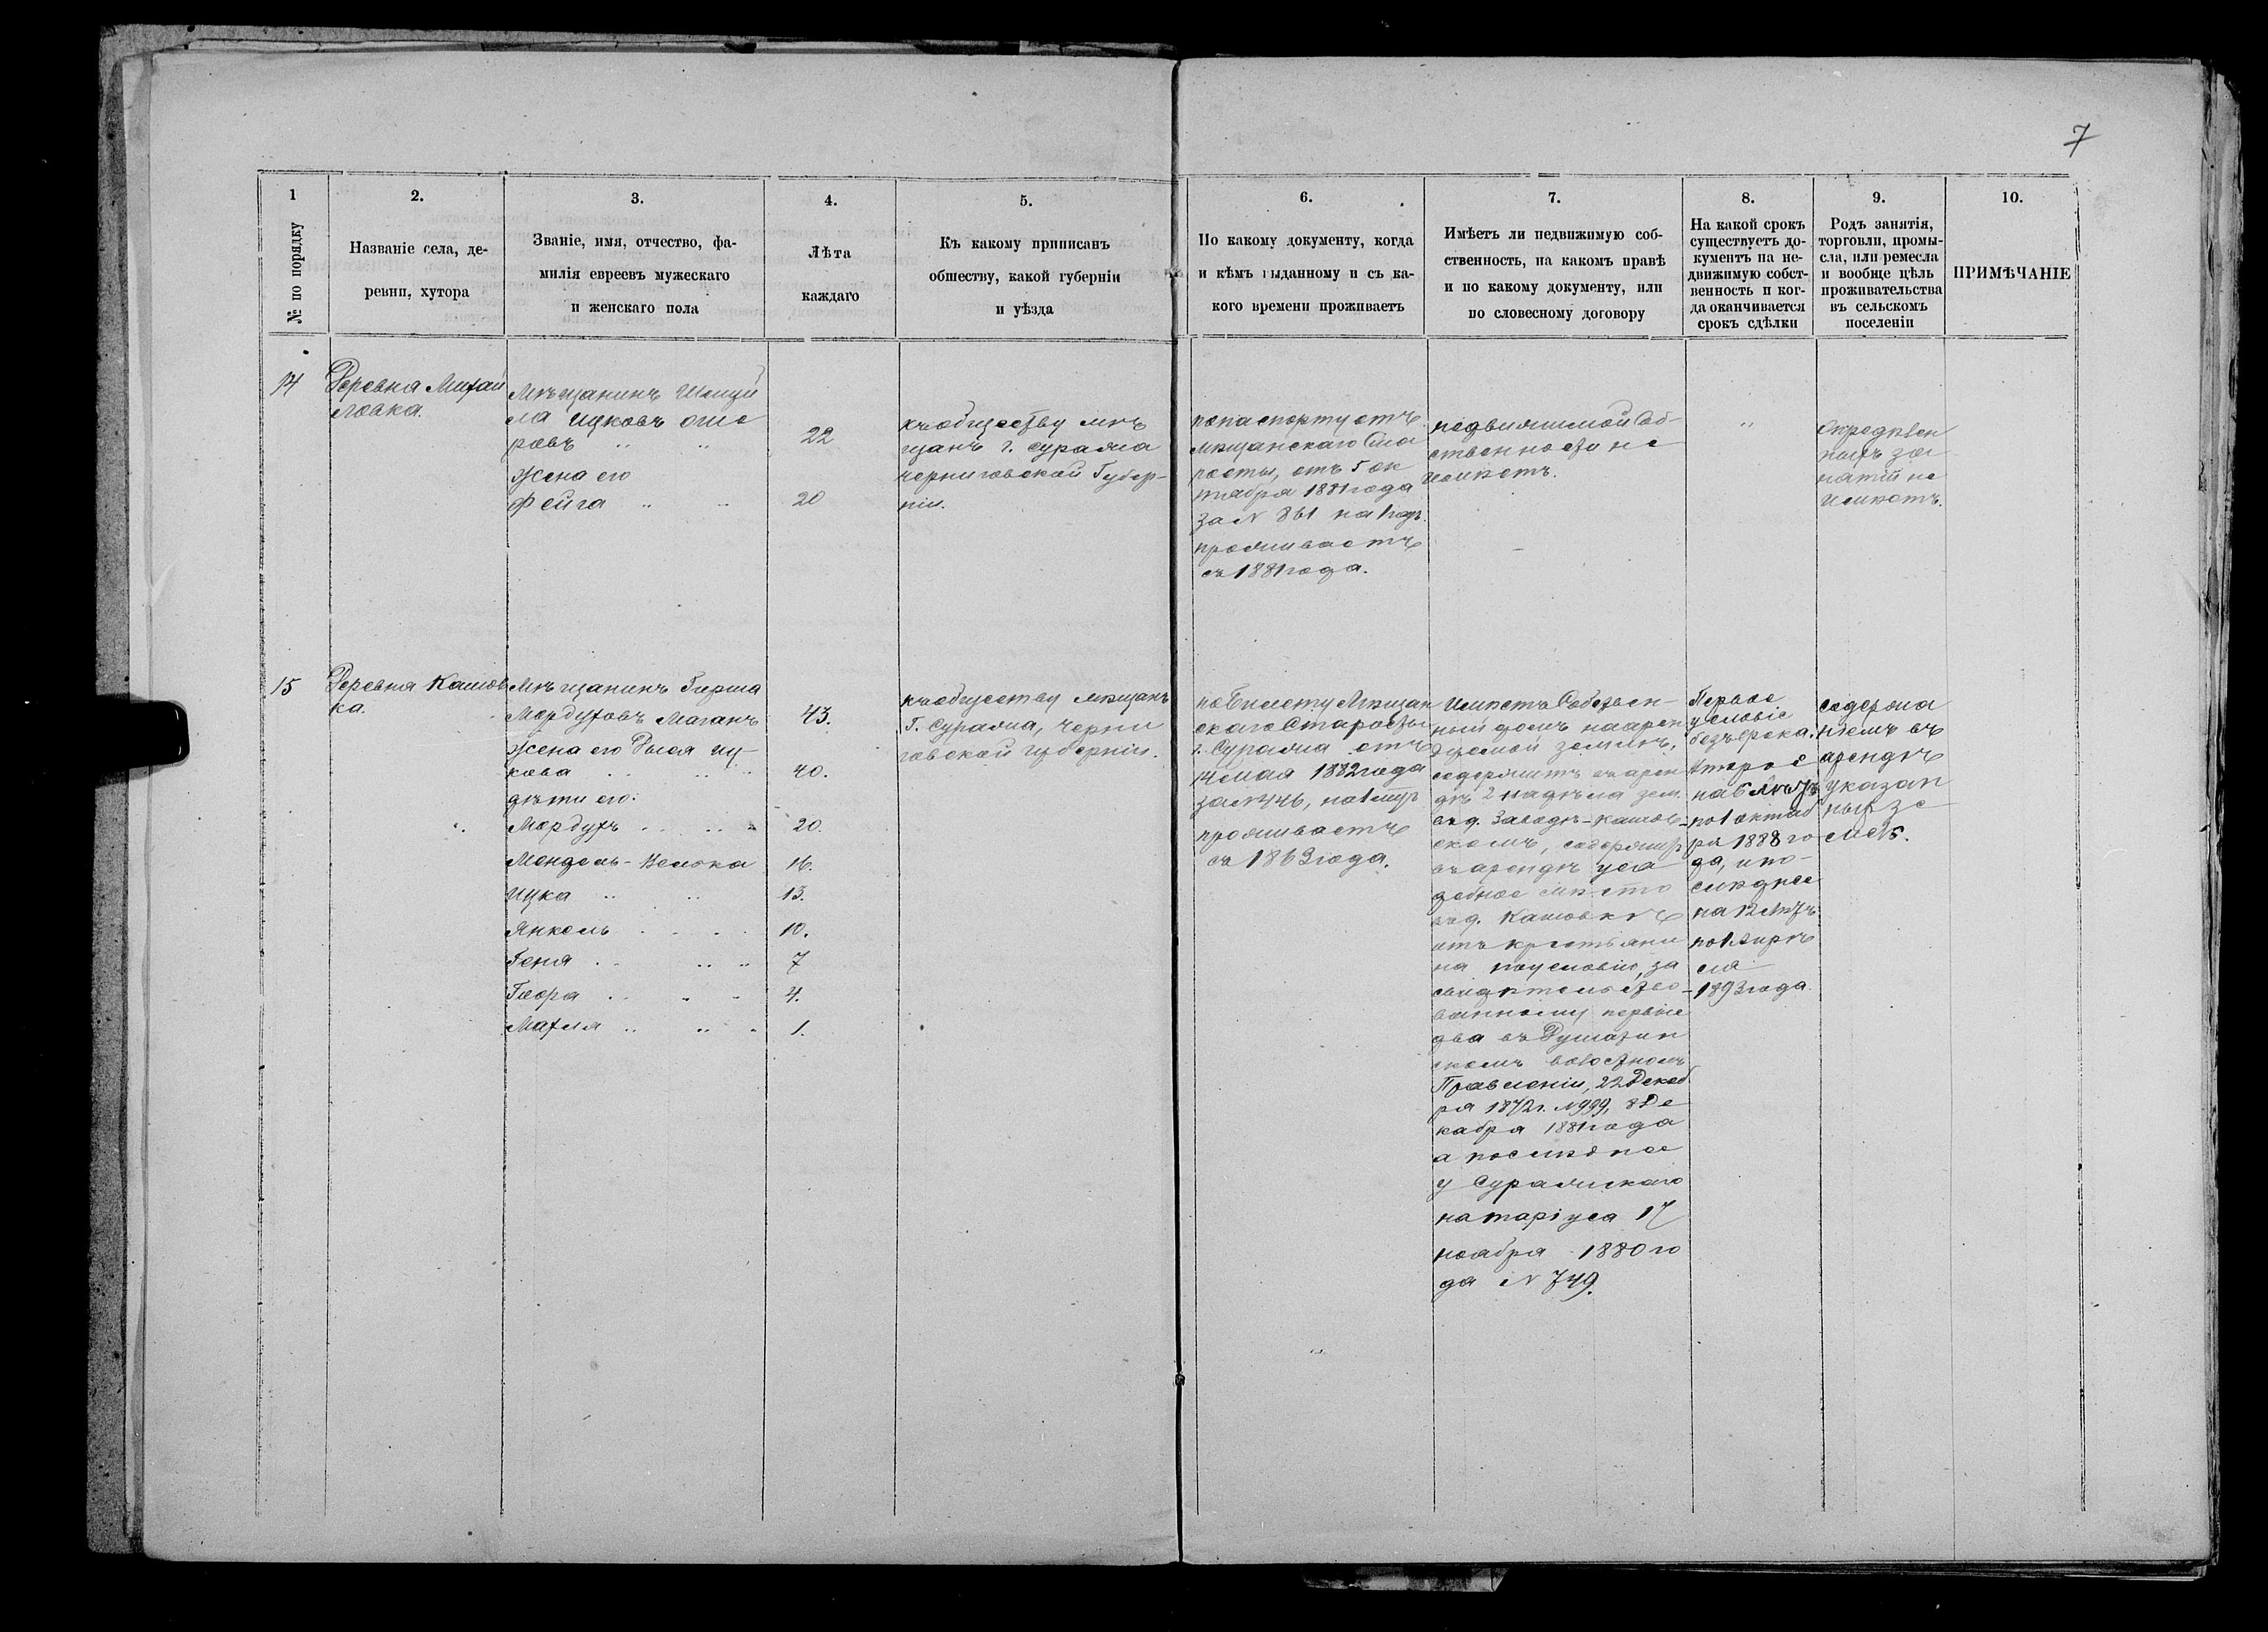 7
1
№ по порядку
2.
Названіе села, де-
ревни, хутора
3.
Званіе, имя, отчество, фа-
милія евреевъ мужескаго
и женскаго пола
4.
Лѣта
каждаго
5.
Къ какому приписанъ
обществу, какой губерніи
и уѣзда
6.
По какому документу, когда
и кѣмъ выданному и съ ка-
кого времени проживаетъ
7.
Имѣетъ ли недвижимую соб-
ственность, на какомъ правѣ
и по какому документу, или
по словесному договору
8.
На какой срокъ
существуетъ до-
кументъ на не-
движимую собст-
венность и ког-
да оканчивается
срокъ сдѣлки
9.
Родъ занятія,
торговли, промы-
сла, или ремесла
и вообще цѣль
проживательства
въ сельскомъ
поселеніи
10.
ПРИМѢЧАНІЕ
14
Деревня Михай
ловка.
Мѣщанинъ Шмуй
ла Ицковъ Оше
ровъ " "
жена его
Фейга " "
22
20
къ обществу мѣ
щанъ г. Суража
Черниговской Губер-
ніи.
по паспорту отъ
мѣщанскаго Ста
росты, отъ 5 ок
тября 1881 года
за N 861 на 1 годъ.
проживаетъ
съ 1881 года.
недвижимой Соб-
ственности не
имѣетъ.
"
Опредѣлен
ныхъ за
нятій не
имѣетъ.
15
Деревня Кашов
ка.
Мѣщанинъ Гирша
Мордуховъ Маганъ
жена его Рыся Иц-
кова
дѣти его:
Мордухъ
Мендель-Велька
Ицка
Янкель
Геня
Двора
Махля
43.
40.
20.
16.
13.
10.
7
4.
1.
къ обществу мѣщанъ
г. Суража, Черни
говской губерніи.
по Билету Мѣщан
скаго Старосты
г. Суража отъ
14 Мая 1882 года
за N 446,
проживаетъ
съ 1863 года.
Имѣетъ Собствен-
ный домъ на арен
дуемой землѣ,
содержитъ въ арен
дѣ 2 надѣла зем.
въ д. Заводѣ-Кашов-
скомъ, содержитъ
въ арендѣ уса
дебное мѣсто
въ д. Кашовкѣ
отъ крестьяни
на по условію, за
свидѣтельство-
ванному первые
два въ Душатин
скомъ волостномъ
Правленіи, 22 Декаб
ря 1872 г. N 999, 8 Де
кабря 1881 года
а послѣднее
у Суражскаго
натаріуса 17
ноября 1880 го
да N 749.
Первое
условіе
безъ срока.
второе
на 6 лѣтъ
по 1 октяб
ря 1888 го
да, и по-
слѣднее
на 12 лѣтъ
по 1 Апрѣ
ля
1893 года.
содержа
ніемъ въ
арендѣ
указан
ныхъ зе
мель.